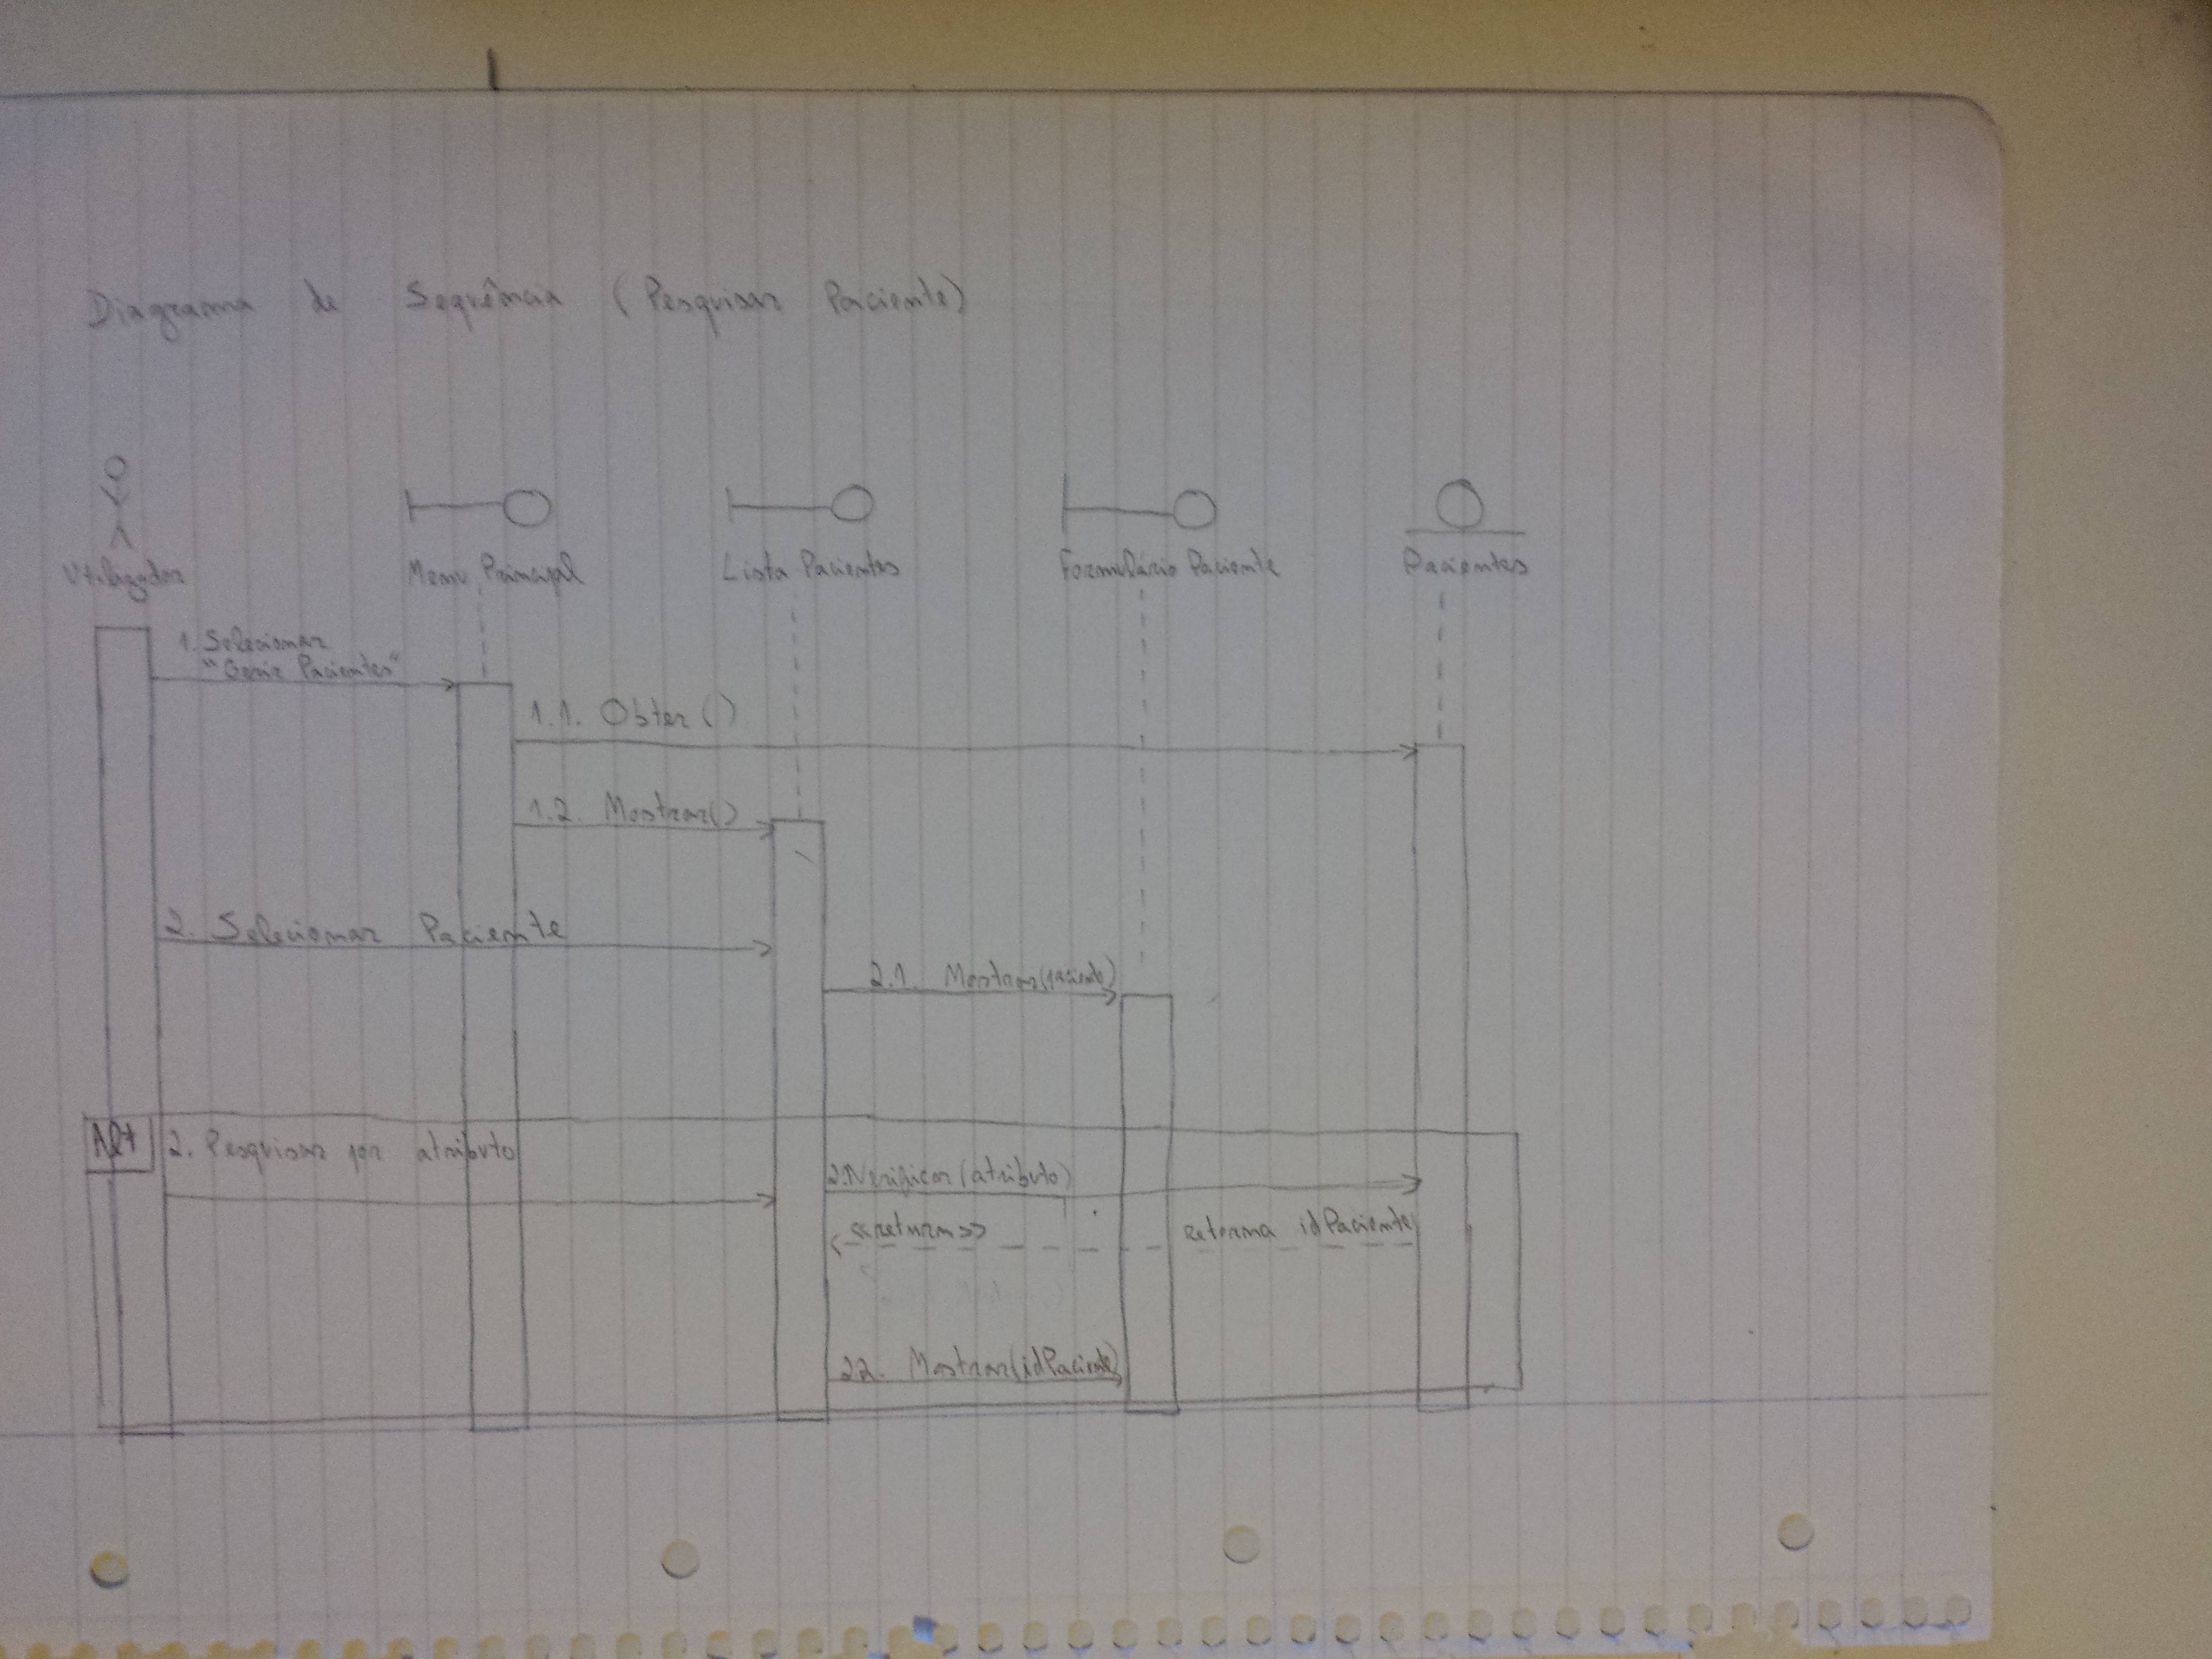 Diagrama de Sequência (Pesquisar Paciente)
Utilizador
Menu Principal
Lista Pacientes
Formulário Paciente
Pacientes
1. Selecionar
"Gerir Pacientes"
1.1. Obter()
1.2. Mostrar()
2. Selecionar Paciente
2.1. Mostrar(paciente)
Alt
2. Pesquisar por atributo
2.1Verificar(atributo)
<<return>>
retorna idPaciente
2.2. Mostrar(idPaciente)